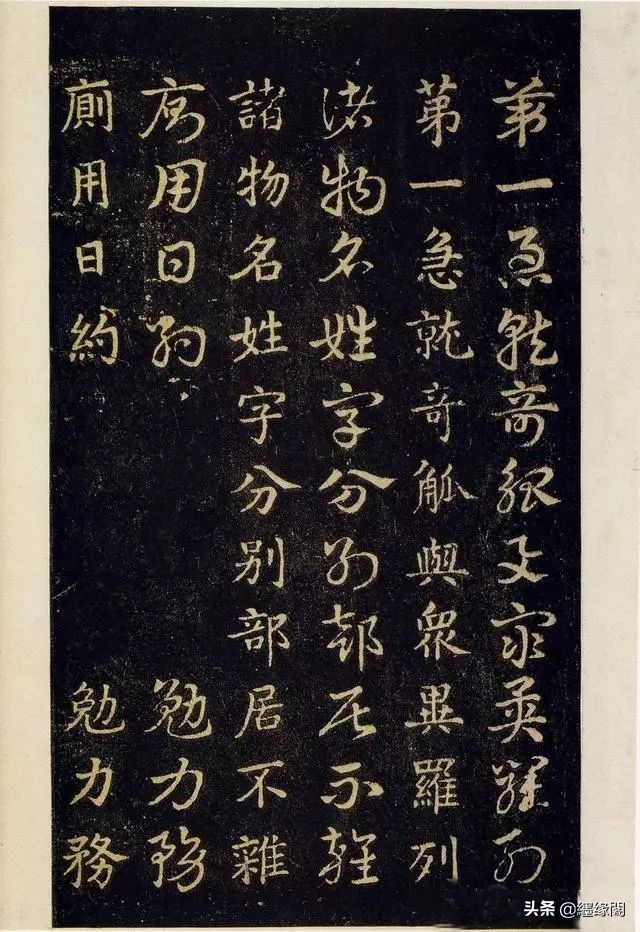 第一急就奇觚與衆異羅列
第一急就奇觚與衆異羅列
諸物名姓字分別部居不雜
諸物名姓字分別部居不雜
廁用日約 勉力務
廁用日約 勉力務
头条